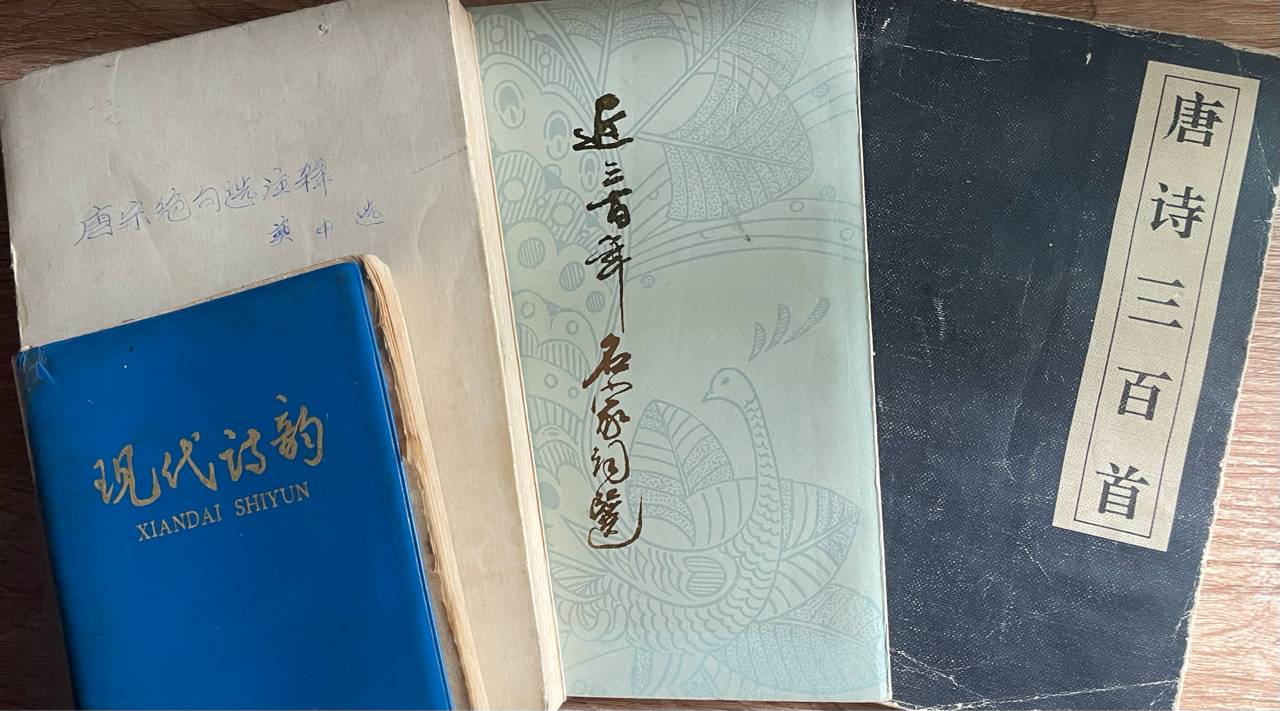 唐宋绝句选注释
选
现代诗韵
XIANDAI SHIYUN
近三百年名家词選
唐诗三百首